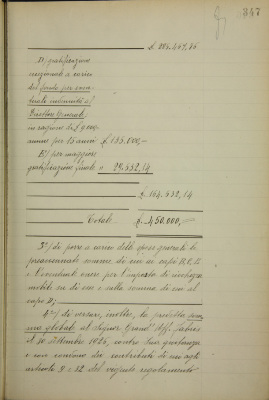 347
£. 285.467,86
D) gratificazione
eccezionale a carico
del fondo per even-
tuale indennità al
Direttore Generale,
in ragione di £ 9.000.-
annue per 15 anni £. 135.000,-
E) per maggiore
gratificazione finale " 29.532,14
£. 164.532,14
Totale £. 450.000,-
3°) di porre a carico delle spese generali le
precisate somme di cui ai capi B, C, E
e l'eventuale onere per l'imposta di ricchezza
mobile su di esse e sulla somma di cui al
capo D;
4°) di versare, inoltre, la predetta som-
ma globale al Signor Grand' Uff.
il 10 Settembre 1926, contro sua quietanza
e con esonero dai contributi di cui agli
articoli 9 e 32 del vigente regolamento